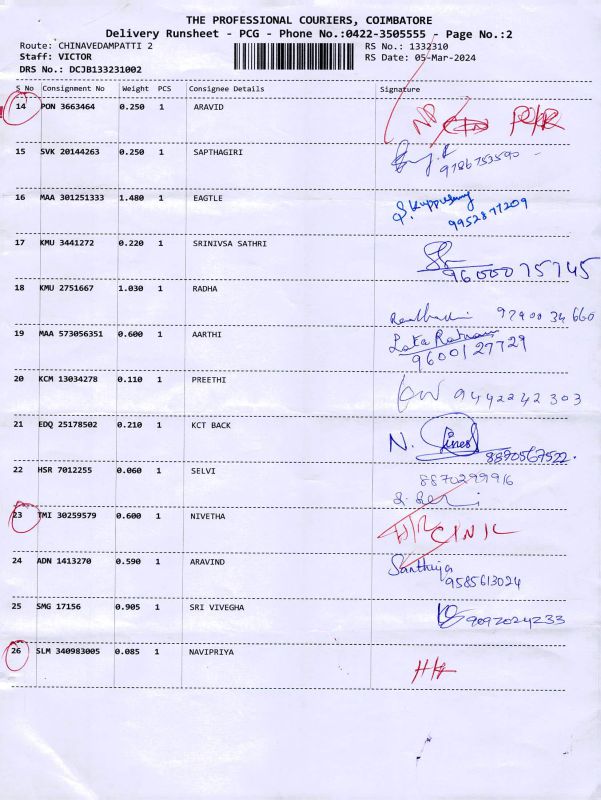 THE PROFESSIONAL COURIERS, COIMBATORE
Delivery Runsheet - PCG - Phone No.:0422-3505555 - Page No.:2
Route: CHINAVEDAMPATTI 2 RS No.: 1332310
Staff: VICTOR RS Date: 05-Mar-2024
DRS No.: DCJB133231002
S No Consignment No Weight PCS Consignee Details Signature
14 PON 3663464 0.250 1 ARAVID
15 SVK 20144263 0.250 1 SAPTHAGIRI
9786753590
16 MAA 301251333 1.480 1 EAGTLE
9952877209
17 KMU 3441272 0.220 1 SRINIVSA SATHRI
9600075745
18 KMU 2751667 1.030 1 RADHA
97900 34 660
19 MAA 573056351 0.600 1 AARTHI
Lata Ratnam
9600127729
20 KCM 13034278 0.110 1 PREETHI
9442242303
21 EDQ 25178502 0.210 1 KCT BACK
N.
8890567522
22 HSR 7012255 0.060 1 SELVI
8870299916
23 TMI 30259579 0.600 1 NIVETHA
24 ADN 1413270 0.590 1 ARAVIND
Santhiya
9585613024
25 SMG 17156 0.905 1 SRI VIVEGHA
9092024233
26 SLM 340983005 0.085 1 NAVIPRIYA